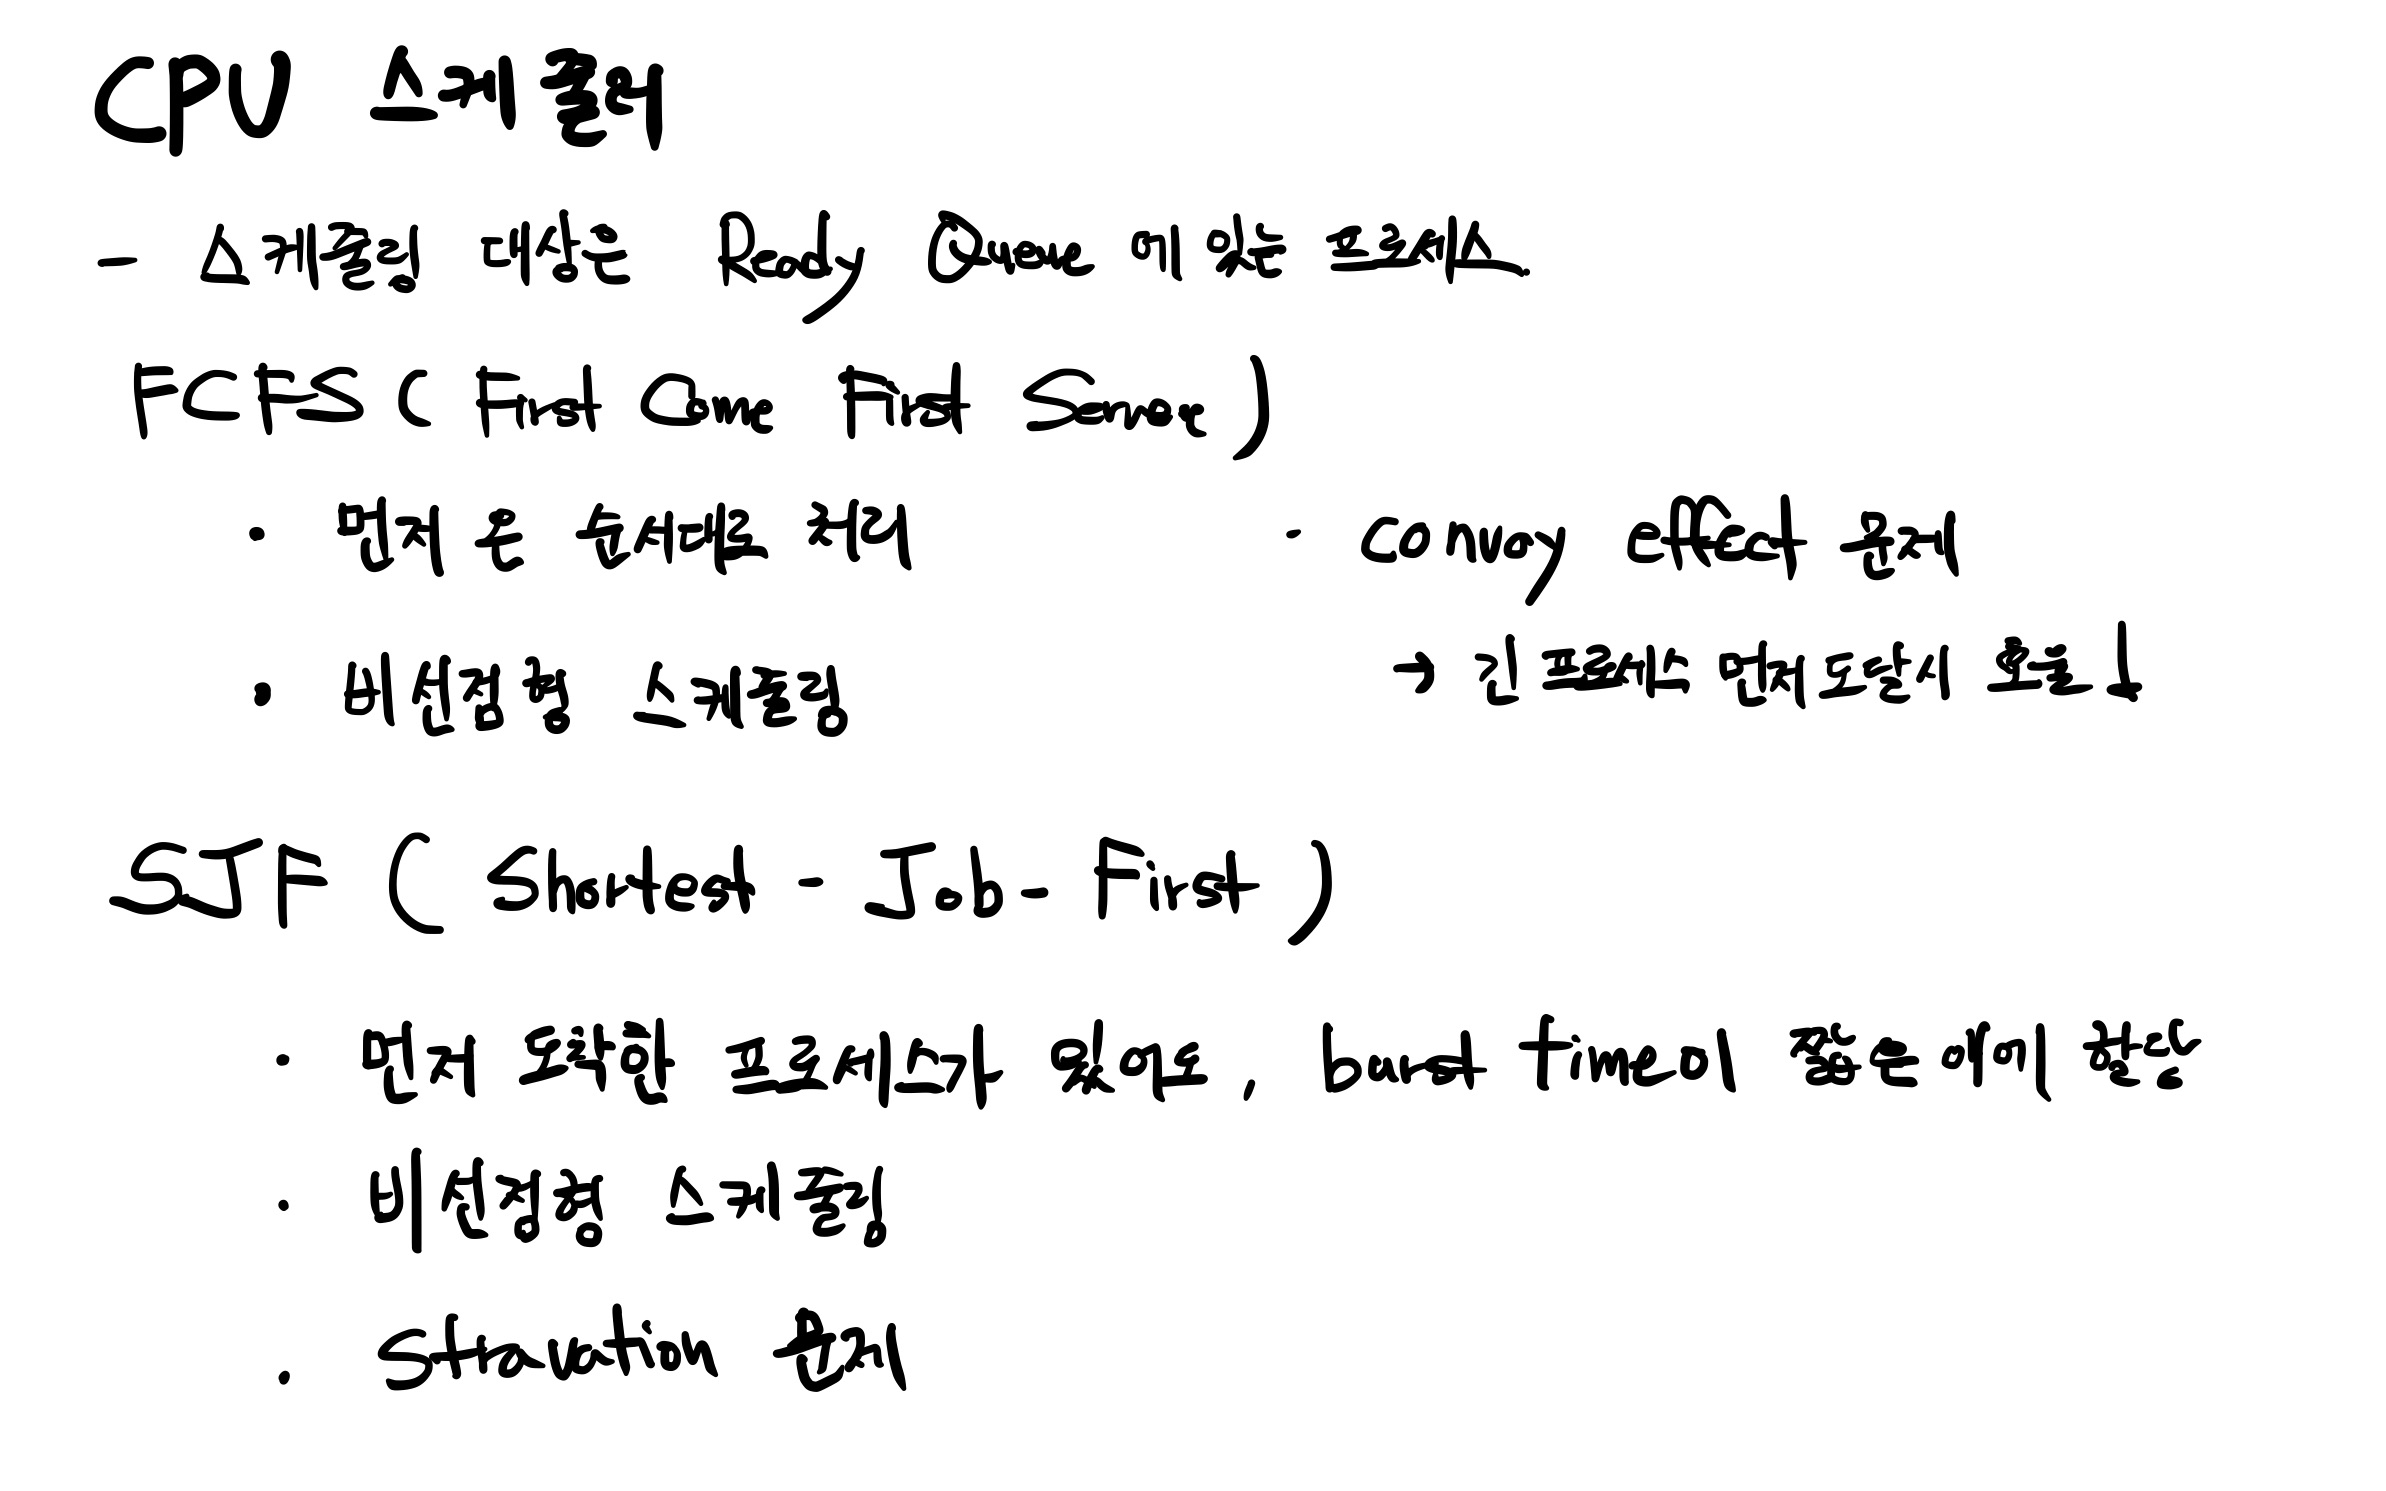 CPU 스케줄러
- 스케줄링 대상은 Ready Queue에 있는 프로세스.
FCFS ( First Come First Served )
· 먼저 온 순서대로 처리
· convoy effect 존재
· 비선점형 스케줄링
→ 긴 프로세스 먼저 도달시 효율↓
SJF ( Shortest - Job - First )
· 먼저 도착한 프로세스가 있어도, burst time이 짧은 애에 할당
· 비선점형 스케줄링
· Stravation 문제